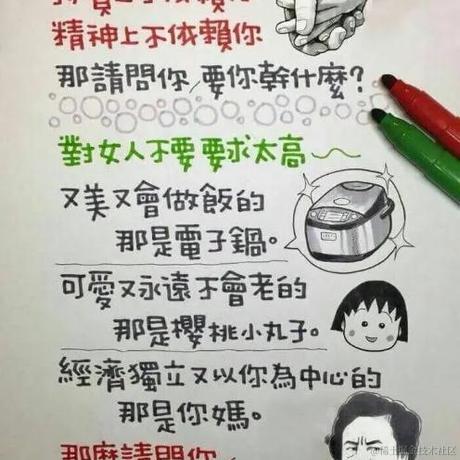 精神上不依賴你
那請問你，要你幹什麼？
對女人不要要求太高～
又美又會做飯的
那是電子鍋。
可愛又永遠不會老的
那是櫻桃小丸子。
經濟獨立又以你為中心的
那是你媽。
那麼請問你